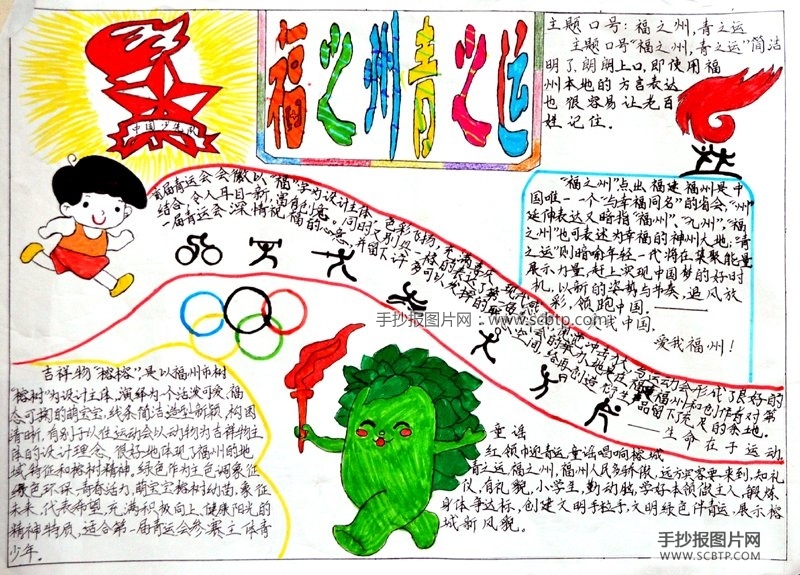 福之州青之运
中国少先队
主题口号:福之州,青之运
主题口号"福之州,青之运"简洁
明了朗朗上口,即使用福
州本地的方言表达
也很容易让老百
姓记住。
首届青运会会徽以"福"字为设计主体,色彩飞扬,
结合,令人耳目一新,富有创意。同时又别具一格的表达了第
一届青运会深情祝福的心意,并留下许多可以发挥的
"福之州"点出福建福州是中
国唯一一个"与幸福同名"的省会,"州"
延伸表达又暗指"福州"、"九州","福
之州"也可表述为幸福的神州大地;"青
之运"则暗喻年轻一代将在集聚能量
展示力量,赶上实现中国梦的好时
机,以新的姿势与节奏,追风放
彩,领跑中国.
我中国.
爱我福州!
手抄报图片网:www.scbtp.com
生命在于运动
吉祥物"榕榕"是以福州市树
"榕树"为设计主体,演绎为一个活泼可爱、福
态可掬的萌宝宝,线条简洁造型新颖,树困
清晰,有别于以往运动会以动物为吉祥物主
体的设计理念,很好地体现了福州的地
域特征和榕树精神.绿色作为主色调象征
绿色环保.青春活力,萌宝宝榕树幼苗,象征
未来,代表希望,充满积极向上,健康阳光的
精神特质,适合第一届青运会参赛主体青
少年.
童谣
红领巾迎青运,童谣唱响榕城
青之运,福之州,福州人民多骄傲,远方宾客要来到,知礼
仪,有礼貌,小学生,勤动脑,学好本领做主人,锻炼
身体争达标,创建文明手拉手,文明绿色伴青运,展示榕
城新风貌。
手抄报图片网
WWW.SCBTP.COM